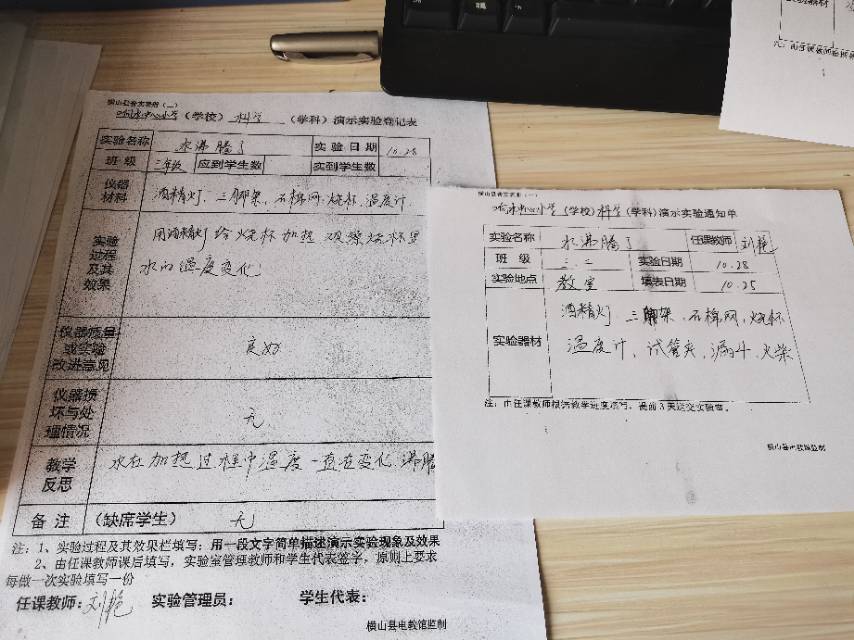 横山县教实表册（一）
响水中心小学（学校）科学（学科）演示实验登记表
实验名称 水沸腾了 实验日期 10.28
班级 三年级 应到学生数 实到学生数
仪器材料 酒精灯、三脚架、石棉网、烧杯、温度计
实验过程及其效果 用酒精灯给烧杯加热 观察烧杯里
水的温度变化
仪器质量或实验改进意见 良好
仪器损坏与处理情况 无
教学反思 水在加热过程中温度一直在变化 沸腾
备注（缺席学生） 无
注：1、实验过程及其效果栏填写：用一段文字简单描述演示实验现象及效果
2、由任课教师课后填写，实验室管理教师和学生代表签字，原则上要求
每做一次实验填写一份
任课教师：刘艳 实验管理员： 学生代表：
横山县电教馆监制
横山县教实表册（一）
响水中心小学（学校）科学（学科）演示实验通知单
实验名称 水沸腾了 任课教师 刘艳
班级 三.二 实验日期 10.28
实验地点 教室 填表日期 10.25
实验器材 酒精灯、三脚架、石棉网、烧杯
温度计、试管夹、漏斗、火柴
注：由任课教师根据教学进度填写，提前3天送交实验室。
横山县电教馆监制